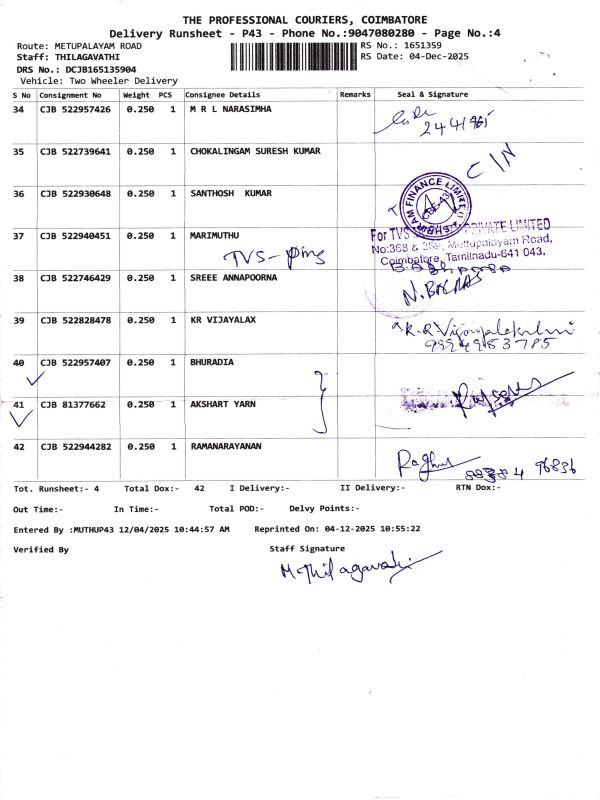 THE PROFESSIONAL COURIERS, COIMBATORE
Delivery Runsheet - P43 - Phone No.:9047080280 - Page No.:4
Route: METUPALAYAM ROAD
RS No.: 1651359
Staff: THILAGAVATHI
RS Date: 04-Dec-2025
DRS No.: DCJB165135904
Vehicle: Two Wheeler Delivery
S No Consignment No Weight PCS Consignee Details Remarks Seal & Signature
34 CJB 522957426 0.250 1 M R L NARASIMHA
35 CJB 522739641 0.250 1 CHOKALINGAM SURESH KUMAR
36 CJB 522930648 0.250 1 SANTHOSH KUMAR
FINANCE LIMITED
37 CJB 522940451 0.250 1 MARIMUTHU
For TVS PRIVATE LIMITED
No:368 & Mettupalayam Road,
Coimbatore, Tamilnadu-641 043.
TVS-
38 CJB 522746429 0.250 1 SREEE ANNAPOORNA
39 CJB 522828478 0.250 1 KR VIJAYALAX
K.R.Vijayalakshmi
9994953785
40 CJB 522957407 0.250 1 BHURADIA
41 CJB 81377662 0.250 1 AKSHART YARN
42 CJB 522944282 0.250 1 RAMANARAYANAN
Raghu
96836
Tot. Runsheet:- 4 Total Dox:- 42 I Delivery:- II Delivery:- RTN Dox:-
Out Time:- In Time:- Total POD:- Delvy Points:-
Entered By :MUTHUP43 12/04/2025 10:44:57 AM Reprinted On: 04-12-2025 10:55:22
Verified By Staff Signature
M.Thilagavathi